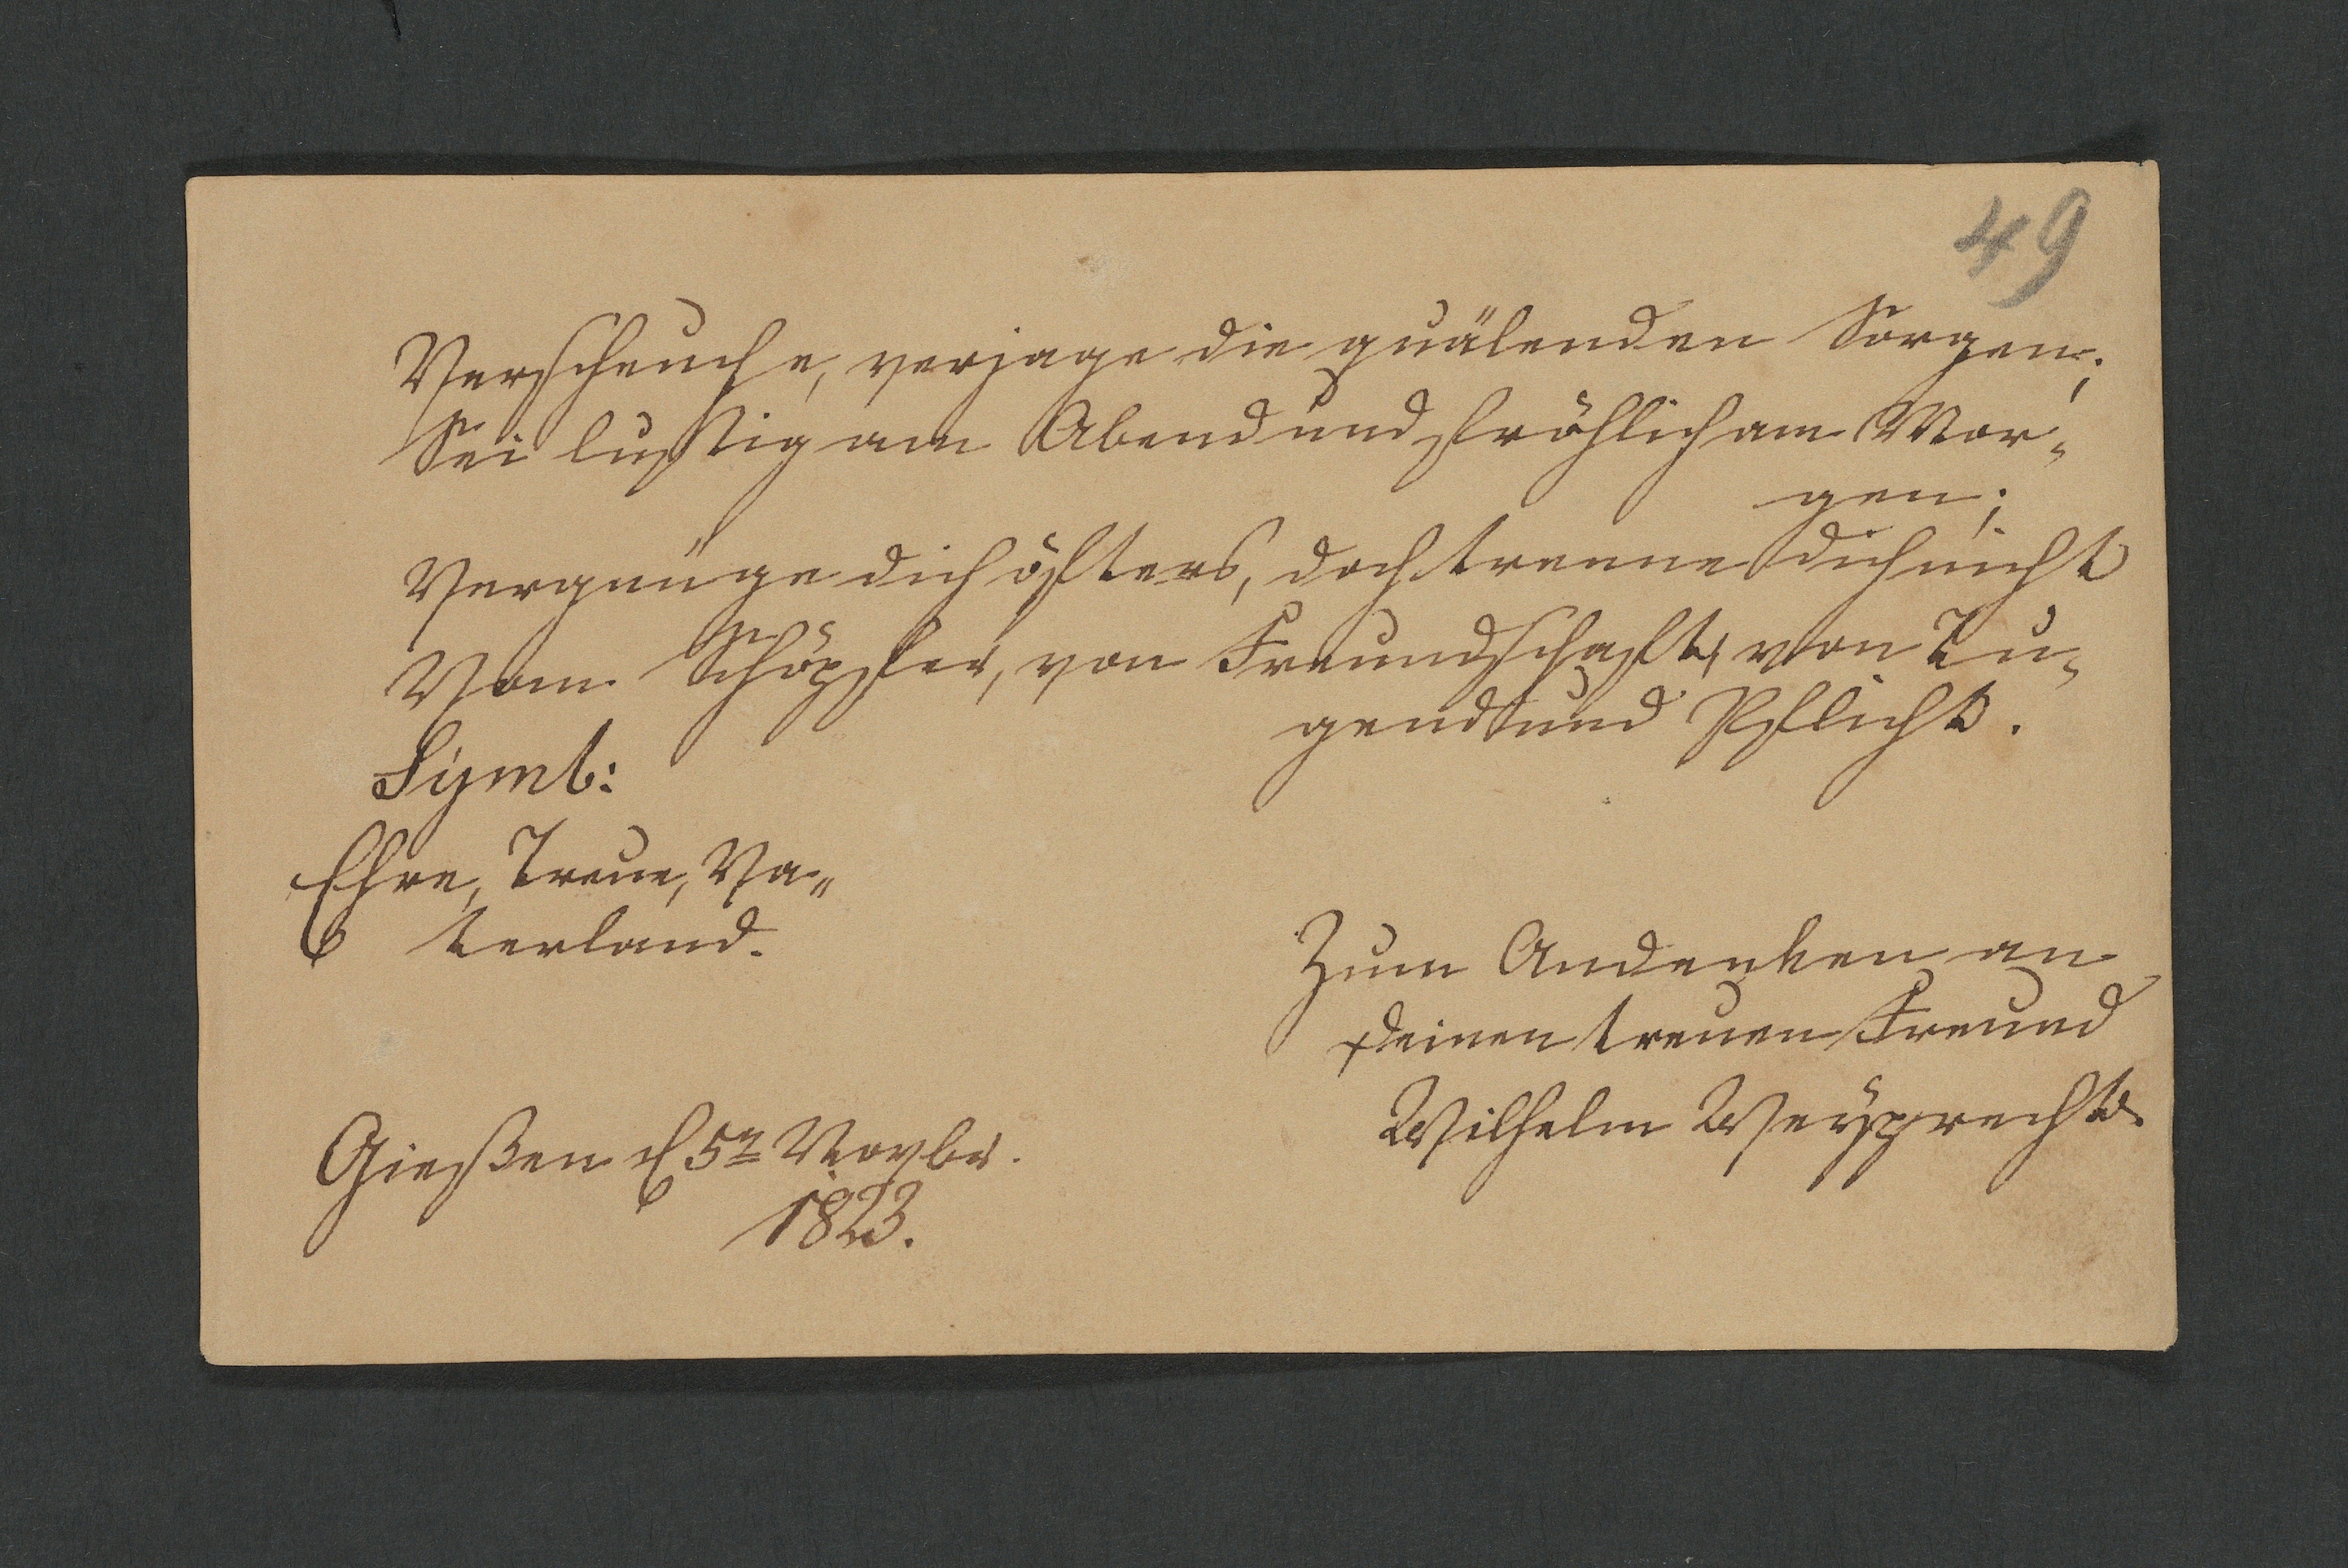 49
Verscheuche, verjage die quälenden Sorgen;
Sei lustig am Abend und fröhlich am Mor-
gen;
Vergnüge dich öfters, doch trenne dich nicht
Vom Schöpfer, von Freundschaft, von Tu-
gend und Pflicht.
Symb:
Ehre, Treue, Va-
terland.
Zum Andenken an
Deinen treuen Freund
Wilhelm Weyprecht
Gießen d 5n Novbr.
1823.